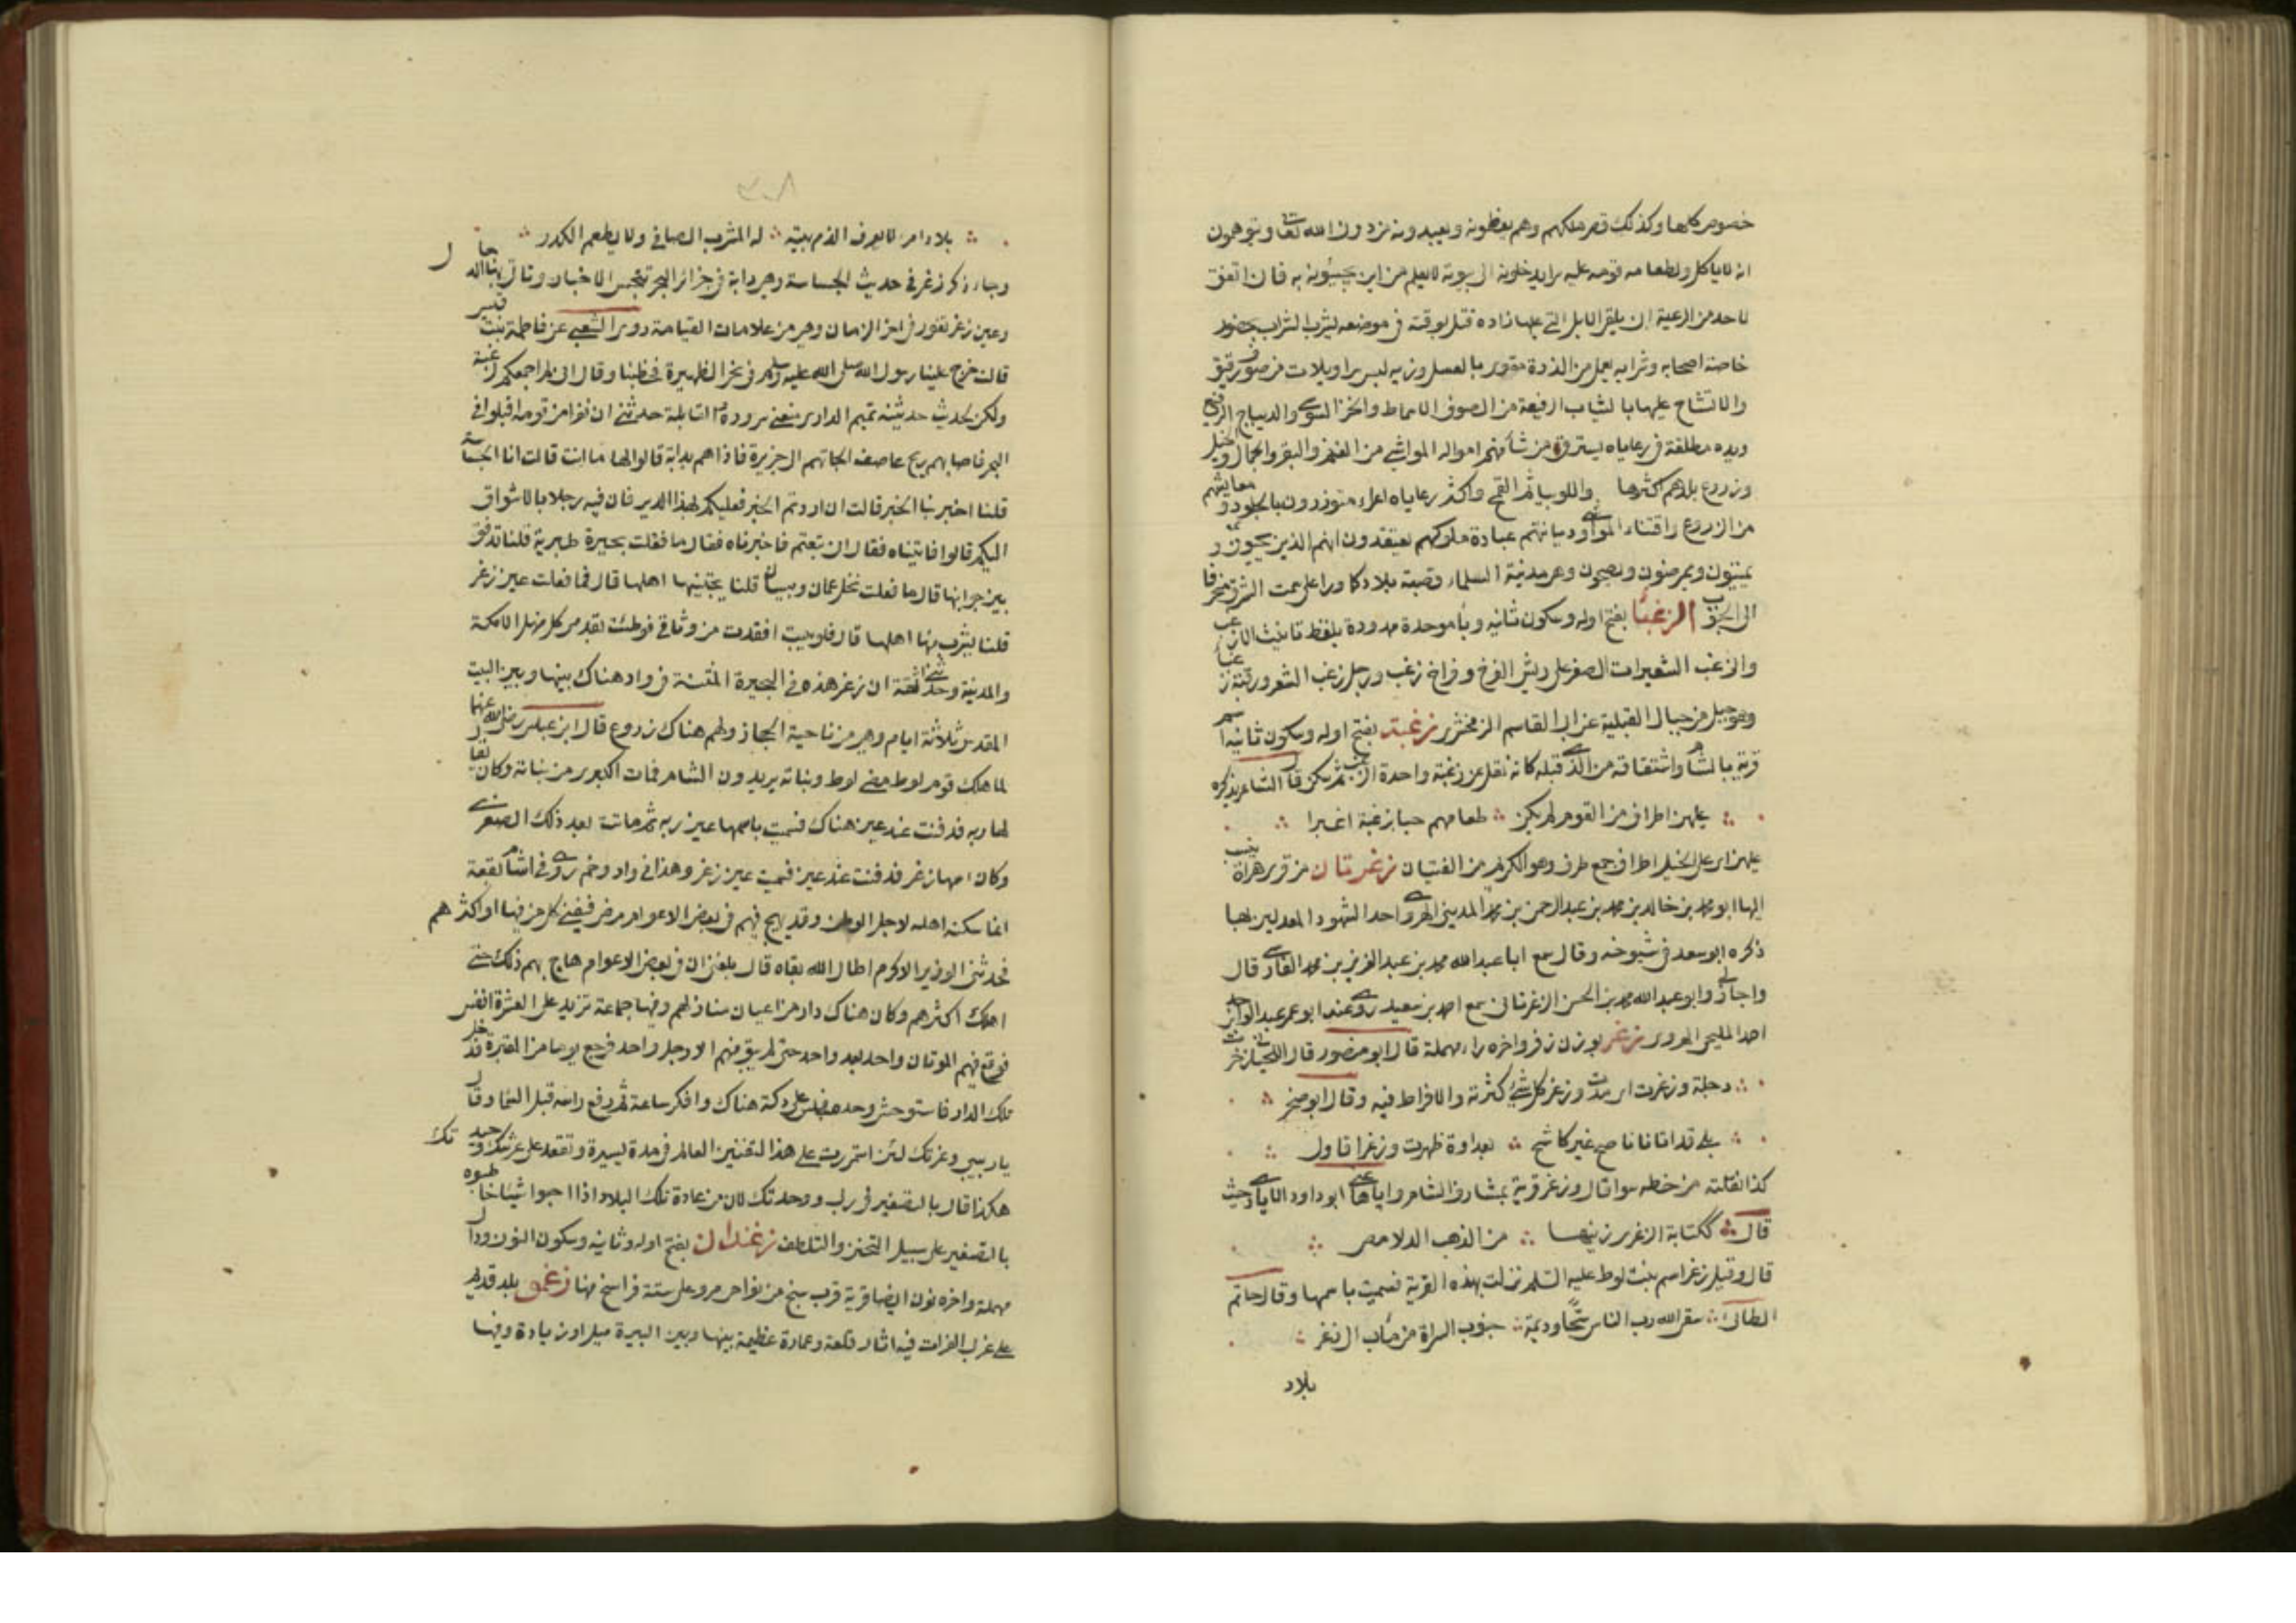 خصوص كلها وكذلك قصر ملكهم وهم يعظمونه ويعبدونه من دون الله تعا ويتوهمون
انه لا ياكل ولطعامه قومه عليه سرا يدخلونه الى بيوته لا يعلم من اين يجيئونه به فان اتفق
لاحد من الرعية ان يلقى الابل التي عليها زاده قتل لوقته في موضعه يشرب الشراب بحضور
خاصة اصحابه وشرابه يعمل من الذرة مقوى بالعسل وزيه لبس سراويلات من صوف رقيق
والاتشاح عليها بالثياب الرفيعة من الصوف الاسماط والخز السوسي والديباج الرفيع
ويده مطلقة في رعاياه يسترق من شا منهم امواله المواشي من الغنم والبقر والجمال والخيل
وزروع بلادهم اكثرها واللوبيا ثم القمح واكثر رعاياه اعراء متوزرون بالجلود ومعايشهم
من الزروع واقتناء المواشي وديانتهم عبادة ملوكهم يعتقدون انهم الذين يحيون و
يميتون ويمرضون ويصحون وهي مدينة السلماء وقصبة بلاد كاورا على سمت الشرق منحرفا
الى الجنوب الزغبا بفتح اوله وسكون ثانيه وبا موحدة ممدودة بلفظ تانيث الازغب
والزغب الشعيرات الصفر على ريش الفرخ وفراخ زغب ورجل زغب الشعر ورقبة زغبا
وهو جبل من جبال القبلية عن ابي القاسم الزمخشري زغبة بفتح اوله وسكون ثانيه اسم
قرية بالشام واشتقاقه من الذي قبله كانه نقل عن زغبة واحدة الزغب ثم سكن قال الشاعر يذكره
عليهن اطراف من القوم لم يكن ؞ طعامهم حبا بزغبة اغبرا ؞
عليهن اي على الخيل اطراف جمع طرف وهو الكريم من الفتيان زغرتان من قرى هراة ينسب
اليها ابو محمد بن خالد بن محمد بن عبد الرحمن بن محمد المديني الهروي احد الشهود المعدلين بها
ذكره ابو سعد في شيوخه وقال سمع ابا عبد الله محمد بن عبد العزيز بن محمد الفارسي قال
واجاز لي وابو عبد الله محمد بن الحسن الزغرتاني سمع احمد بن سعيد روى عنه ابو عمر عبد الواحد بن
احمد المليحي الهروي زغر بوزن زفر واخره راء مهملة قال ابو منصور قال اللحياني زخرت
دجلة وزغرت اي مدت وزغر كل شئ كثرته والافراط فيه وقال ابو صخر ؞
؞ بلى قد اتانا ناصح غير كاشح ؞ بعداوة ظهرت وزغر اقاول ؞
كذا نقلته من خطه سوا قال وزغر قرية بمشارف الشام واياها عنى ابو داود الايادي حيث
قال ؞ ككتابة الزغري زينها ؞ من الذهب الدلامص ؞
قال وقيل زغر اسم بنت لوط عليه السلم نزلت بهذه القرية فسميت باسمها وقال حاتم
الطائي ؞ سقى الله رب الناس سحا وديمة ؞ جنوب السراة من مآب الى زغر ؞
بلاد
٣٠٨
؞ بلاد امرء لا يعرف الذم بيته ؞ له المشرب الصافي ولا يطعم الكدر ؞
وجاء ذكر زغر في حديث الجساسة وهي دابة في جزائر البحر تتجسس الاخبار وتاتي بها الدجال
وعين زغر تغور في اخر الزمان وهي من علامات القيامة روى الشعبي عن فاطمة بنت قيس
قالت خرج علينا رسول الله صلى الله عليه وسلم في نحر الظهيرة فخطبنا وقال اني لم اجمعكم لرغبة
ولكن لحديث حدثنيه تميم الداري منعني سروره القايلة حدثني ان نفرا من قومه اقبلوا في
البحر فاصابهم ريح عاصف الجاتهم الى جزيرة فاذا هم بدابة قالوا لها ما انت قالت انا الجساسة
قلنا اخبرينا الخبر قالت ان اردتم الخبر فعليكم بهذا الدير فان فيه رجلا بالاشواق
اليكم قالوا فاتيناه فقال انى تبعتم فاخبرناه فقال ما فعلت بحيرة طبرية قلنا تدفق
بين جوانبها قال ما فعلت نخل عمان وبيسان قلنا يجتنيها اهلها قال فما فعلت عين زغر
قلنا يشرب منها اهلها قال فلو يبست افقدت من وثاقي فوطئت بقدمي كل منهل الا مكة
والمدينة وحدثني ثقة ان زغر هذه في البحيرة المنتنة في واد هناك بينها وبين البيت
المقدس ثلاثة ايام وهي من ناحية الحجاز ولهم هناك زروع قال ابن عباس رضي الله عنهما
لما هلك قوم لوط مضى لوط وبناته يريدون الشام فمات الكبرى من بناته وكان يقال
لها ربه فدفنت عند عين هناك فسميت باسمها عين ربه ثم ماتت بعد ذلك الصغرى
وكان اسمها زغر فدفنت عند عين فسميت عين زغر وهذا في واد وخم ردي في اشام بقعة
انما سكنه اهله لاجل الوطن وقد يهيج فيهم في بعض الاعوام مرض فيفني كل من فيها او اكثرهم
فحدثني الوزير الاكرم اطال الله بقاه قال بلغني ان في بعض الاعوام هاج بهم ذلك حتى
اهلك اكثرهم وكان هناك دار من اعيان منازلهم وفيها جماعة تزيد على العشرة انفس
فوقع فيهم الموتان واحد بعد واحد حتى لم يبق منهم الا رجل واحد فرجع يوما من المقبرة فدخل
تلك الدار فاستوحش وحده فجلس على دكة هناك وافكر ساعة ثم رفع راسه قبل السما وقال
يا ربيبي وعزتك لئن استمريت على هذا التفنين العالم في مدة يسيرة وتقعد على عرشك وحيدك
هكذا قال بالتصغير في ربي ووحدتك لان من عادة تلك البلاد اذا احبوا شيئا خاطبوه
بالتصغير على سبيل التحنن والتلطف زغندان بفتح اوله وثانيه وسكون النون ودال
مهملة واخره نون ايضا قرية قرب سنج من نواحي مرو على ستة فراسخ منها زغمى بلد قديم
على غربي الفرات فيه اثار قلعة وعمارة عظيمة بينها وبين البيرة ميل او زيادة وفيها